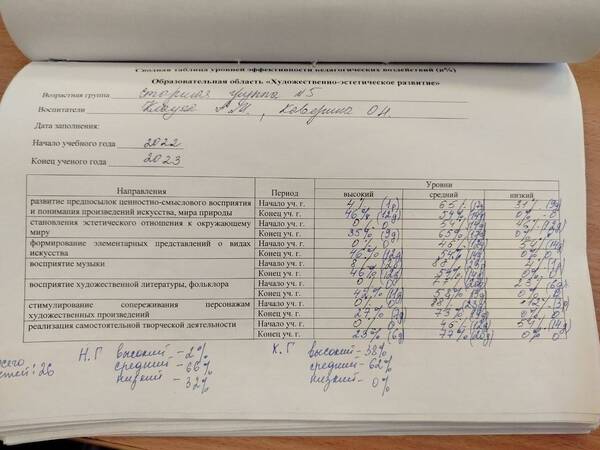 Сводная таблица уровней эффективности педагогических воздействий (в%)
Образовательная область «Художественно-эстетическое развитие»
Возрастная группа старшая группа №5
Воспитатели О.Н.
Дата заполнения:
Начало учебного года 2022
Конец ученого года 2023
Направления Период Уровни
высокий средний низкий
развитие предпосылок ценностно-смыслового восприятия Начало уч. г. 4% (1д) 65% 31%
и понимания произведений искусства, мира природы Конец уч. г. 46% (12д) 54% (14д) 0% 0
становления эстетического отношения к окружающему Начало уч. г. 0% 0 54% (14д) 46% (12д)
миру Конец уч. г. 35% (9д) 65% 0% 0
формирование элементарных представлений о видах Начало уч. г. 0% 0 46% 54% (14д)
искусства Конец уч. г. 46% (12д) 54% (14д) 0% 0
восприятие музыки Начало уч. г. 8% 88% 4%
Конец уч. г. 46% (12д) 54% (14д) 0%
восприятие художественной литературы, фольклора Начало уч. г. 0% 0 77% 23%
Конец уч. г. 42% (11д) 58% 0% 0
стимулирование сопереживания персонажам Начало уч. г. 0% 0 88% 12%
художественных произведений Конец уч. г. 27% (7д) 73% (19д) 0% 0
реализация самостоятельной творческой деятельности Начало уч. г. 0% 0 46% (12д) 54% (14д)
Конец уч. г. 23% (6д) 77% (20д) 0% 0
Н.Г высокий – 2% К.Г высокий – 38%
средний – 66% средний – 62%
низкий – 32% низкий – 0%
всего
детей: 26